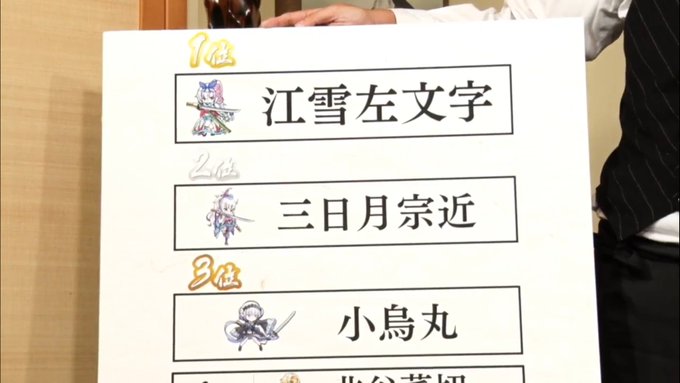 1位
江雪左文字
2位
三日月宗近
3位
小烏丸